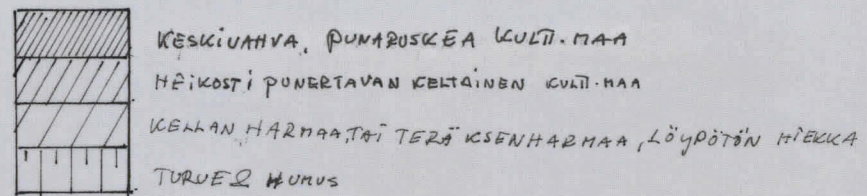 KESKIVAHVA, PUNARUSKEA KULTT. MAA
HEIKOSTI PUNERTAVAN KELTAINEN KULTT. MAA
KELLAN HARMAA, TAI TERÄKSENHARMAA, LÖYDÖTÖN HIEKKA
TURVE & HUMUS